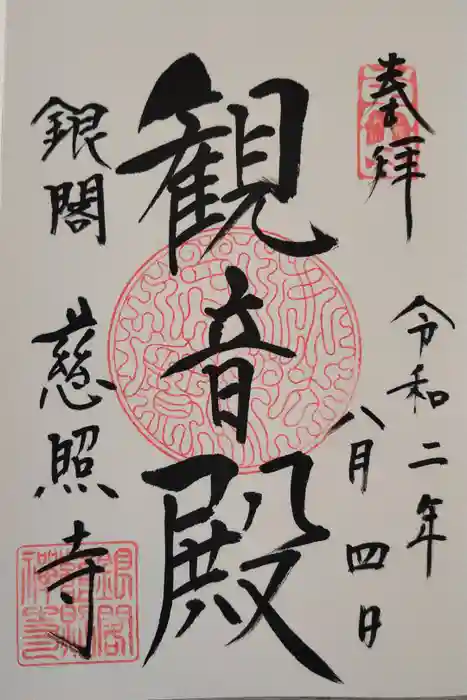 奉拝
令和二年
八月四日
観音殿
銀閣 慈照寺